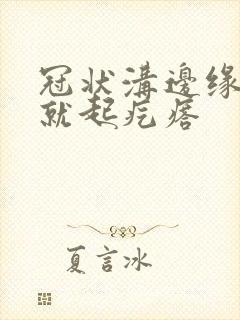 冠状溝邊缘
就起疙瘩
夏言冰